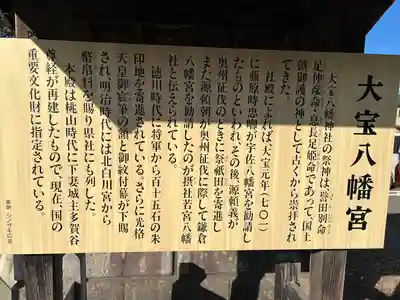 大宝八幡宮
大宝八幡神社の祭神は、誉田別命
足仲彦命・息長足姫命であって、国土
鎮御護の神として古くから崇拝され
てきた。
社殿によれば大宝元年(七〇一)
に藤原時忠卿が宇佐八幡宮を勧請し
たものといわれ、その後、源頼義が
奥州征伐のときに祭祗田を寄進し
また源頼朝が奥州征伐に際して鎌倉
八幡宮を勧請したのが摂社若宮八幡
社と伝えられている。
徳川時代に将軍から百十五石の朱
印地を寄進されている。さらに光格
天皇御宸筆の額と御紋付幕が下賜
され、明治時代には北白川宮から
幣帛料を賜り県社にも列した。
本殿は桃山時代に下妻城主多賀谷
尊経が再建したもので、現在、国の
重要文化財に指定されている。